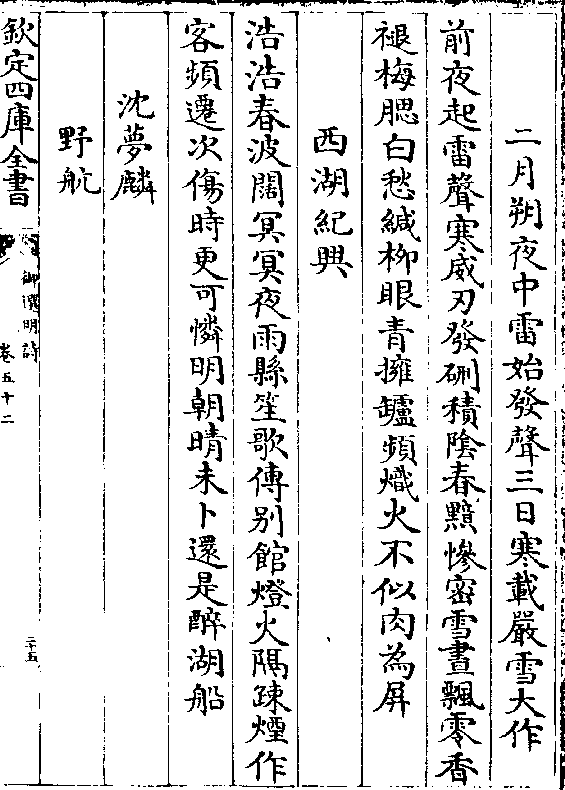 二月朔夜中雷始發聲三日寒載嚴雪大作
前夜起雷聲寒威刃發硎積陰春黯慘密雪晝飄零香
褪梅腮白愁緘柳眼青擁罏頻熾火不似肉為屏
西湖紀興
浩浩春波闊冥冥夜雨縣笙歌傳别館燈火隔疎煙作
客頻遷次傷時更可憐明朝晴未卜還是醉湖船
沈夢麟
野航
欽定四庫全書
御選明詩
卷五十二
三十五